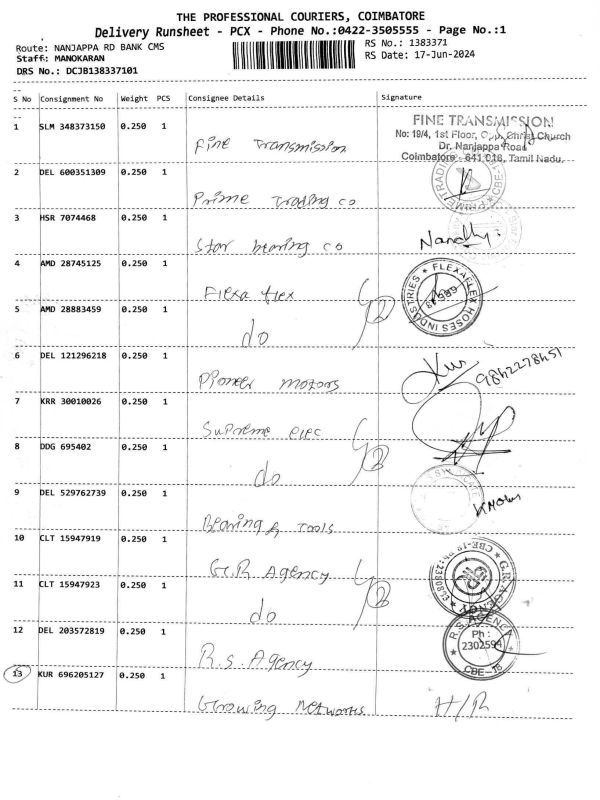 THE PROFESSIONAL COURIERS, COIMBATORE
Delivery Runsheet - PCX - Phone No.:0422-3505555 - Page No.:1
Route: NANJAPPA RD BANK CMS
RS No.: 1383371
Staff: MANOKARAN
RS Date: 17-Jun-2024
DRS No.: DCJB138337101
S No Consignment No Weight PCS Consignee Details Signature
1 SLM 348373150 0.250 1 Fine Transmission
FINE TRANSMISSION
No: 19/4, 1st Floor, Opp. Christ Church
Dr. Nanjappa Road
Coimbatore - 641 018, Tamil Nadu.
2 DEL 600351309 0.250 1 Prime Trading co
PRIME TRADING CBE
3 HSR 7074468 0.250 1 Star bearing co
4 AMD 28745125 0.250 1 Flexa flex
FLEXAFLEX HOSES INDUSTRIES
5 AMD 28883459 0.250 1 do
6 DEL 121296218 0.250 1 Pioneer motors
7 KRR 30010026 0.250 1 Supreme elec
8 DDG 695402 0.250 1 do
9 DEL 529762739 0.250 1 Bearing & Tools
10 CLT 15947919 0.250 1 G.R Agency
G.R. AGENCY
11 CLT 15947923 0.250 1 do
12 DEL 203572819 0.250 1 R.S. Agency
R.S. AGENCY
Ph :
2302594
CBE-18
13 KUR 696205127 0.250 1 Growing Networks H/R